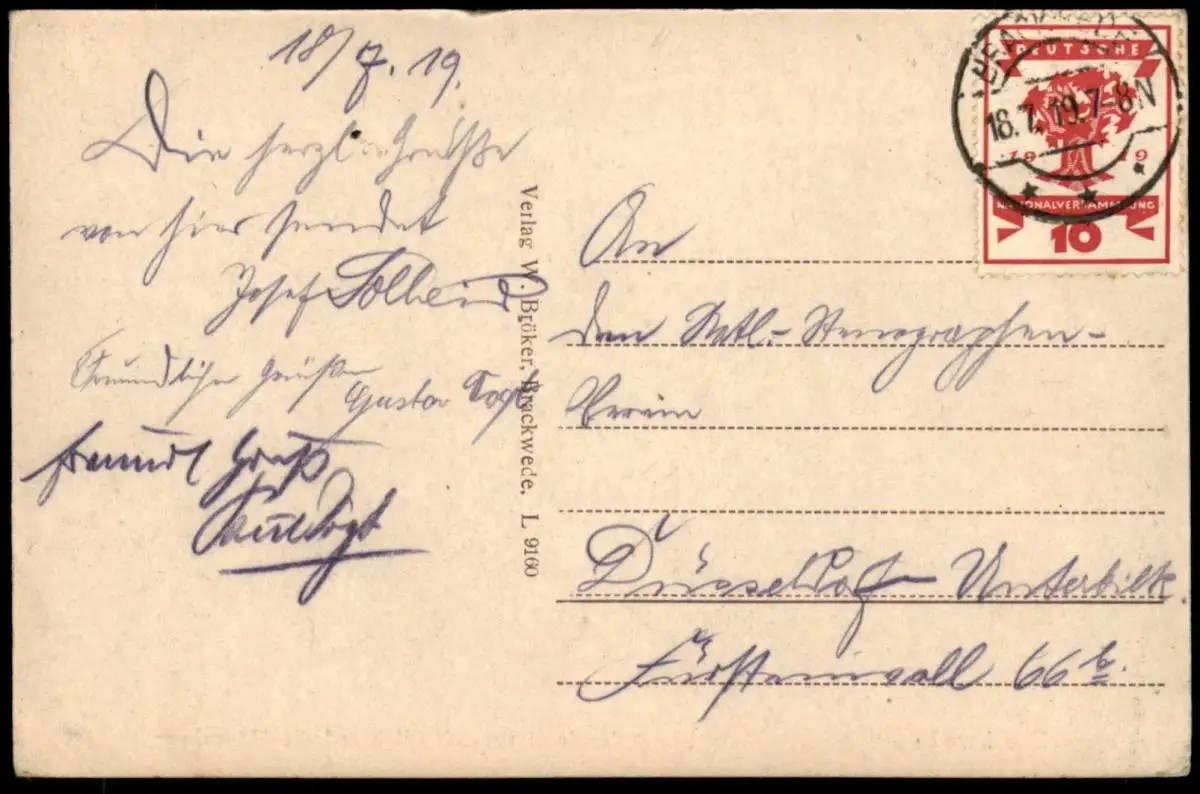 18/7.19.
Die herzl. Grüße
von hier sendet
Josef
Freundlichen Grüßen
Gustav Vogt
Freundl Gruß
Vogt
Verlag W. Bröker, Brackwede. L 9160
BRACKWEDE
18.7.19.7-8N
DEUTSCHE
1919
NATIONALVERSAMMLUNG
10
An
den Kathl.-Stenographen-
Verein
Düsseldorf-Unterbilk
Fürstenwall 66 b.